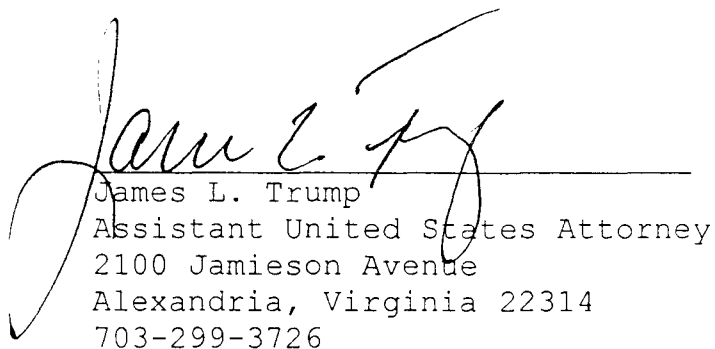 James L. Trump
James L. Trump
Assistant United States Attorney
2100 Jamieson Avenue
Alexandria, Virginia 22314
703-299-3726